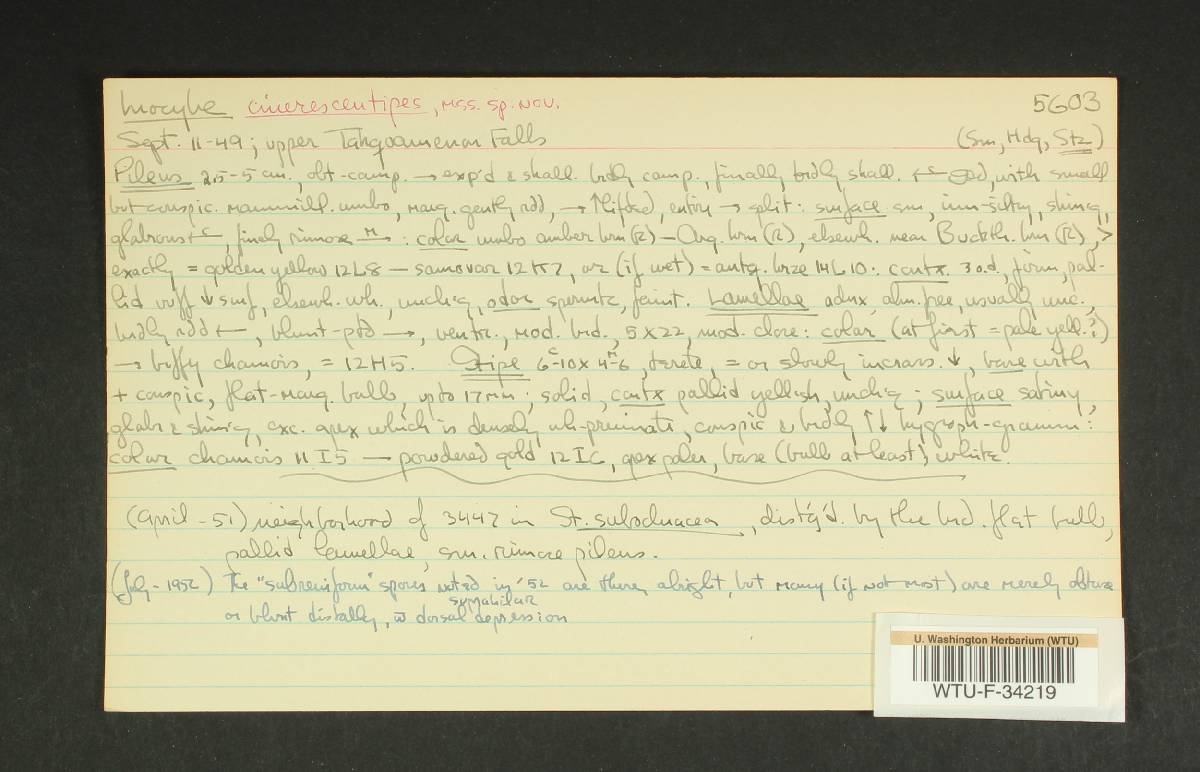 Inocybe cinerescentipes, mss. sp. nov. 5603
Sept. 11-49; upper Tahquamenon Falls (Sm, Hdq, Stz)
Pileus 2.5-5 cm., obt-camp. → exp'd & shall. brdly camp., finally brdly shall. with small
but conspic. mammill. umbo, marg. gently rdd, → entire → split: surface sm, shiny,
glabrous, finely rimose: color umbo amber brn (R) — Arg. brn (R), elsewh. near Buckth. brn (R), >
exactly = golden yellow 12L8 — samovar 12K7, or (if wet) = antq. brze 14L10: contx. 3 o.d., firm, pal-
lid buff ↓ surf, elsewh. wh., unch'g, odor spermtc, faint. Lamellae adnx alm. free, usually unc.,
brdly rdd ←, blunt-ptd →, ventr., mod. brd., 5 x 22, mod. close: color (at first = pale yell.?)
→ buffy chamois, = 12H5. Stipe 6-10 x 4-6, terete, = or slowly incrass. ↓, base with
+ conspic, flat-marg. bulb, up to 17 mm; solid, contx pallid yellsh, unch'g; surface satiny,
glabr & shin'g, exc. apex which is densely wh-pruinate, conspic & brdly ↑↓
color chamois 11I5 — powdered gold 12I6, apex paler, base (bulb at least) white.
(April-51) neighborhood of 3447 in St. subochracea, dist'g'd. by the brd. flat bulb,
pallid lamellae, sm. rimose pileus.
(July-1952) The "subreniform" spores noted in '52 are there alright, but many (if not most) are merely obtuse
or blunt distally, w̄ dorsal suprahilar depression
U. Washington Herbarium (WTU)
WTU-F-34219